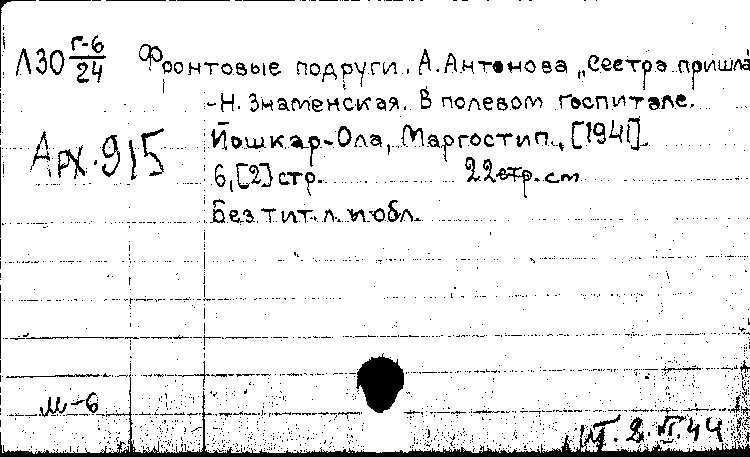 Л30 Г-6/24 Фронтовые подруги. А. Антонова „Сестра пришла
-Н. Знаменская. В полевом госпитале.
Арх. 915 Йошкар-Ола, Маргостип., [1941].
6, [2] стр. 22 стр. см
Без тит. л. и обл.
М-6
2. VI. 44